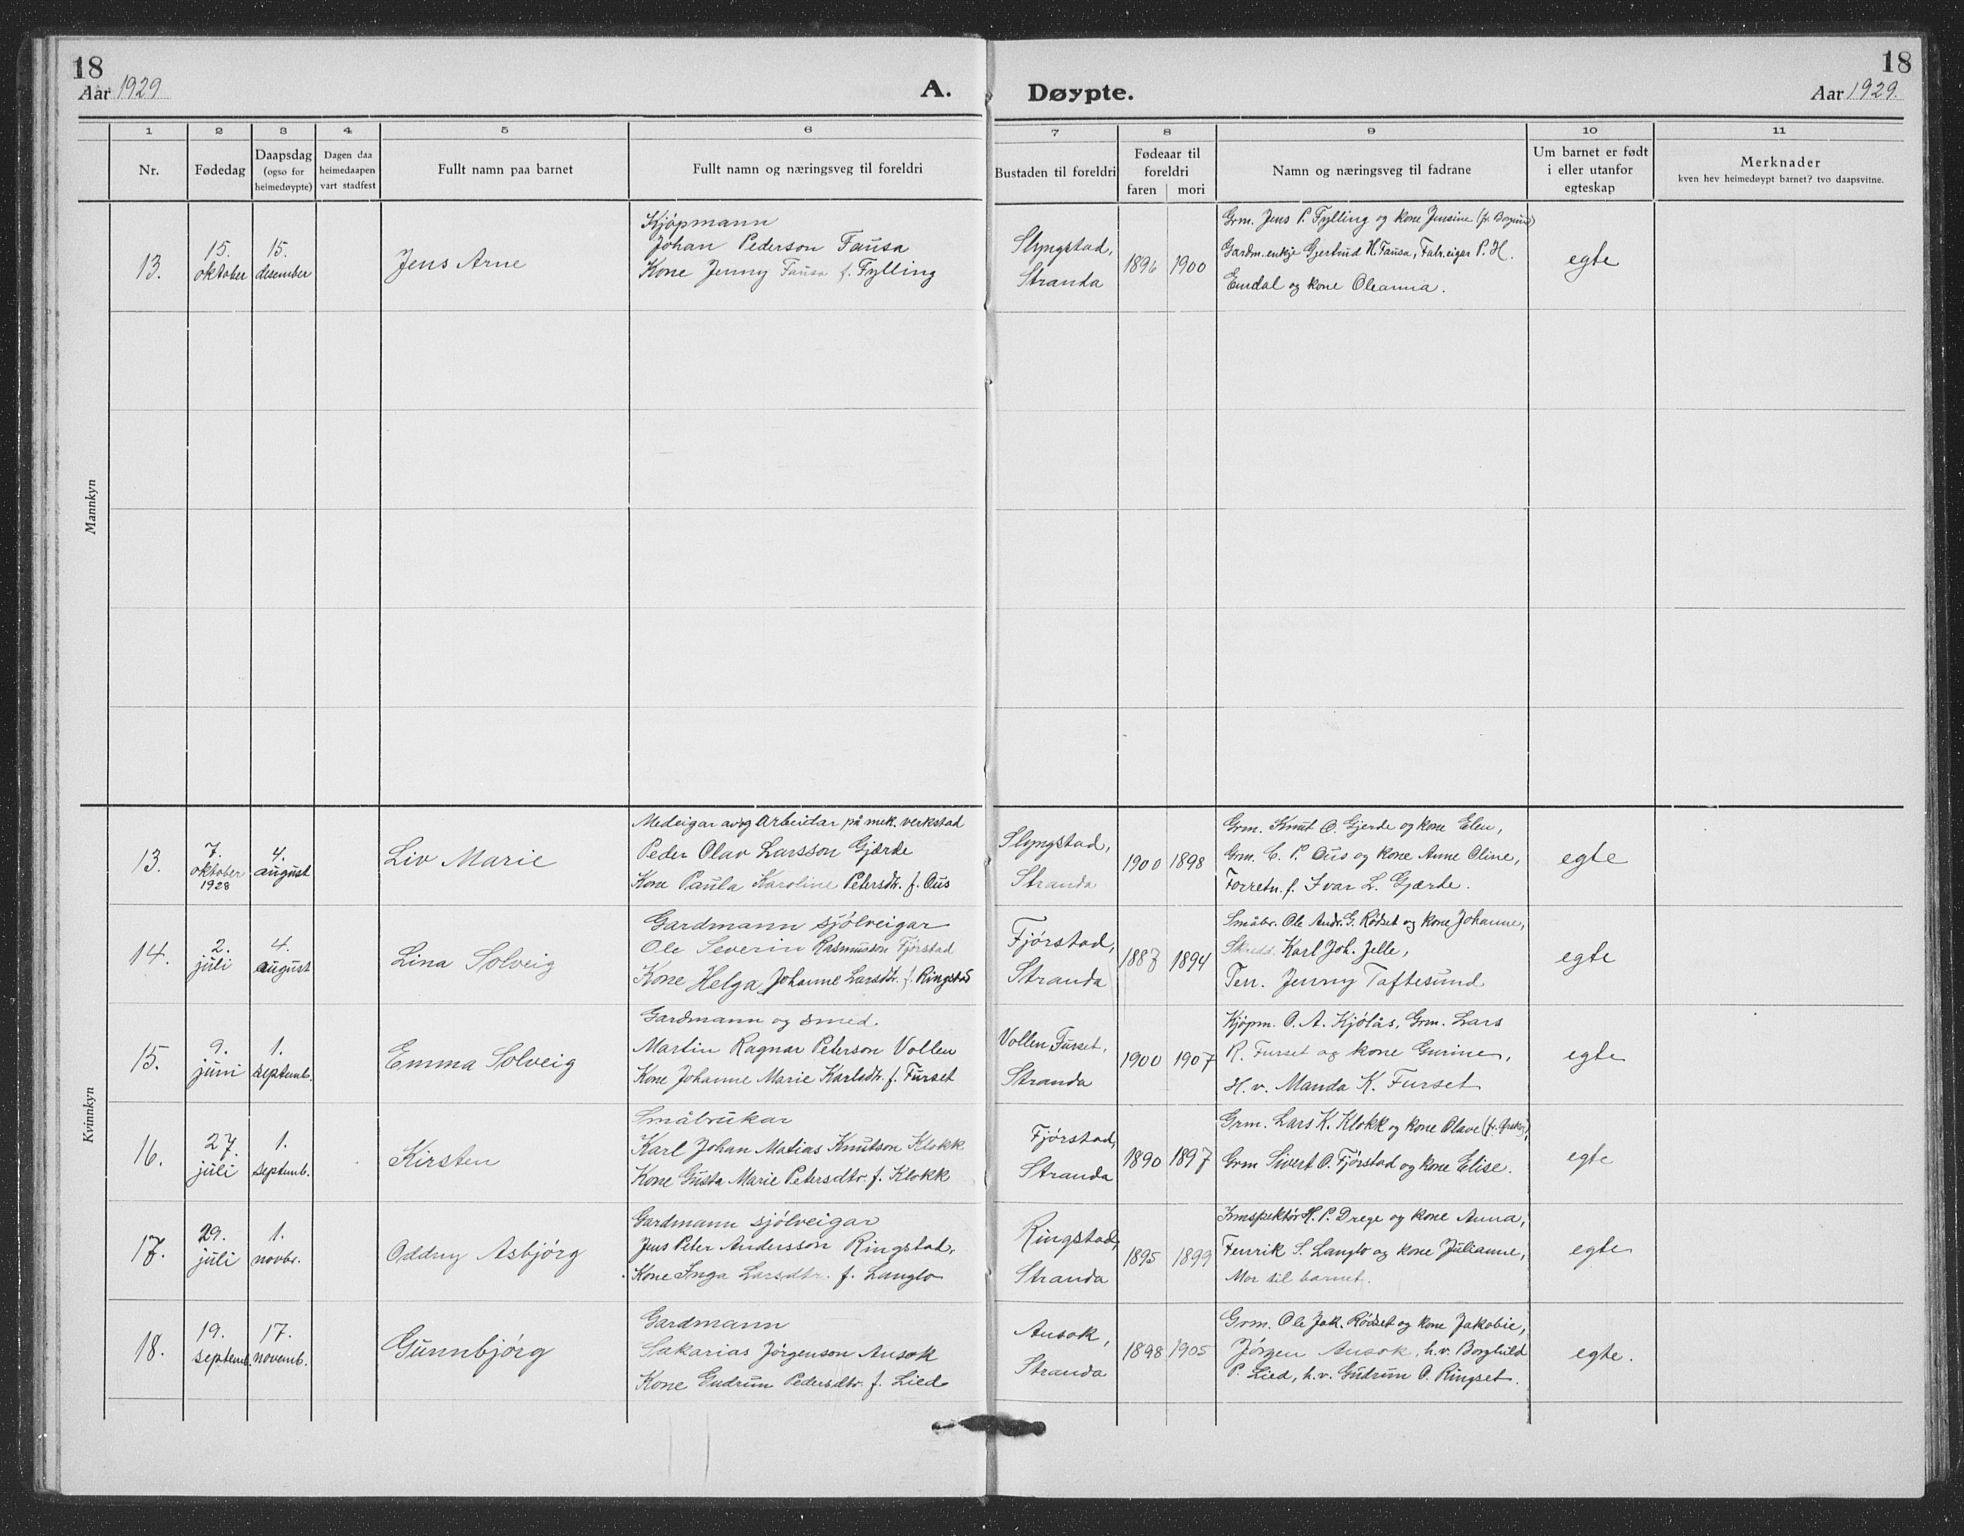 18
Aar 1929
A.
Døypte.
18
Aar 1929.
1 2 3 4 5 6 7 8 9 10 11
Nr.
Fødedag
Daapsdag
(ogso for
heimedøypte)
Dagen daa
heimedaapen
vart stadfest
Fullt namn paa barnet
Fullt namn og næringsveg til foreldri
Bustaden til foreldri
Fødeaar til
foreldri
faren mori
Namn og næringsveg til fadrane
Um barnet er født
i eller utanfor
egteskap
Merknader
kven hev heimedøypt barnet? tvo daapsvitne.
Mannkyn
13.
15.
oktober
15.
desember
Jens Arne
Kjøpmann
Johan Pederson Fausa
Kone Jenny Fausa f. Fylling
Slyngstad,
Stranda
1896 1900
Grm. Jens P. Fylling og kone Jensine (fr. Borgund)
Gardm.enkje Gjertrud H. Fausa, Fabr.eigar P. H.
Emdal og kone Oleanna.
egte
Kvinnkyn
13.
7.
oktober
1928
4.
august
Liv Marie
Medeigar av og Arbeidar på mek. verkstad
Peder Olav Larsson Gjærde
Kone Paula Karoline Petersdtr. f. Ous
Slyngstad,
Stranda
1900 1898
Grm. Knut O. Gjerde og kone Elen,
Grm. C. P. Ous og kone Anne Oline,
Forretn.f. Ivar L. Gjærde.
egte
14.
2.
juli
4.
august
Lina Solveig
Gardmann sjølveigar
Ole Severin Rasmuson Fjørstad
Kone Helga Johanne Larsdtr. f. Ringstad
Fjørstad,
Stranda
1887 1894
Småbr. Ole Andr. G. Rødset og kone Johanne,
Karl Joh. Jelle,
Ten. Jenny Taftesund
egte
15.
9.
juni
1.
septemb.
Emma Solveig
Gardmann og smed.
Martin Ragnar Peterson Vollen
Kone Johanne Marie Karlsdtr. f. Furset
Vollen Furset,
Stranda
1900 1907
Kjøpm. O. A. Kjølås, Grm. Lars
R. Furset og kone Gurine,
H. v. Manda K. Furset
egte
16.
27.
juli
1.
septemb.
Kirsten
Småbrukar
Karl Johan Matias Knutson Klokk
Kone Gusta Marie Petersdtr. f. Klokk
Fjørstad,
Stranda
1890 1897
Grm. Lars K. Klokk og kone Olave
Grm Sivert O. Fjørstad og kone Elise.
egte
17.
29.
juli
1.
novbr.
Oddny Asbjørg
Gardmann sjølveigar
Jens Peter Andersson Ringstad,
Kone Inga Larsdtr. f. Langlo
Ringstad,
Stranda
1895 1899
Innspektør H. P. Drege og kone Anna,
Fenrik S. Langlo og kone Julianne,
Mor til barnet.
egte
18.
19.
septemb.
17.
novemb.
Gunnbjørg
Gardmann
Sakarias Jørgenson Ansok
Kone Gudrun Pedersdtr. f. Lied
Ansok,
Stranda
1898 1905
Grm. Ole Jak. Rødset og kone Jakobie,
Jørgen Ansok, h.v. Borghild
P. Lied, h.v. Gudrun O. Ringset.
egte.